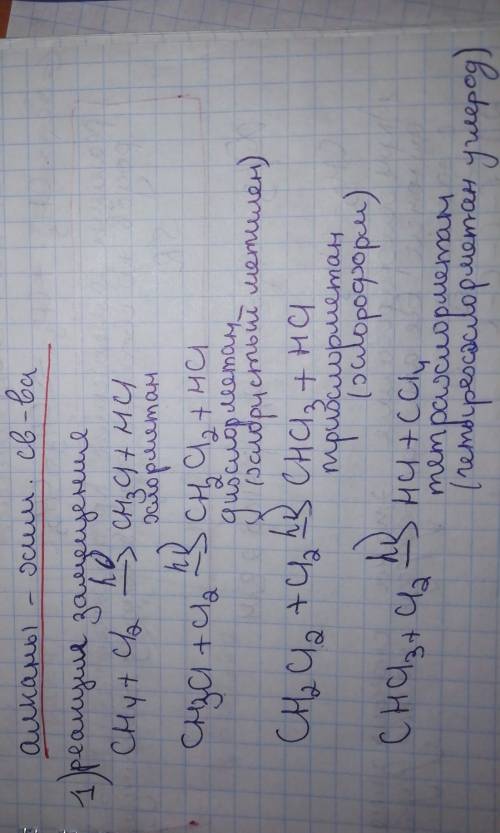 алканы – хим. св-ва
1) реакция замещения
CH4 + Cl2 hν→ CH3Cl + HCl
хлорметан
CH3Cl + Cl2 hν→ CH2Cl2 + HCl
дихлорметан
(хлористый метилен)
CH2Cl2 + Cl2 hν→ CHCl3 + HCl
трихлорметан
(хлороформ)
CHCl3 + Cl2 hν→ HCl + CCl4
тетрахлорметан
(четыреххлорметан углерод)